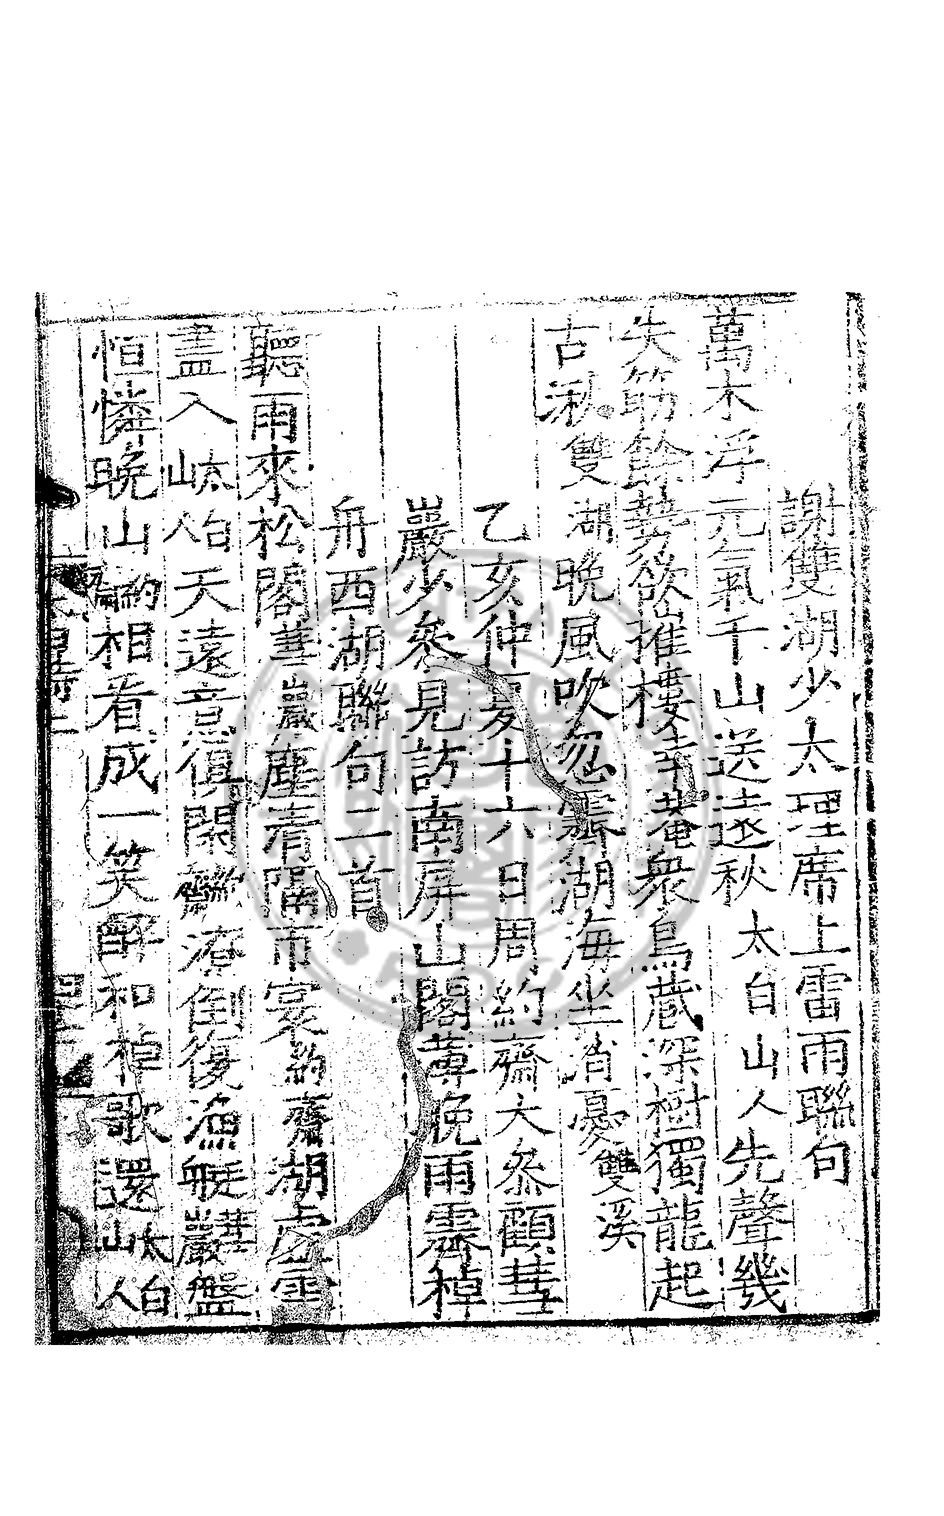 謝雙湖少太理席上雷雨聯句
萬木浮元氣千山送遠秋太白山人先聲幾
失筯餘勢欲摧樓幸菴衆鳥藏深樹獨龍起
古湫雙湖晚風吹忽霽湖海坐消憂雙溪
乙亥仲夏十六日周約齋大叅顧𦶎
巖少叅見訪南屏山閣薄晚雨霽棹
舟西湖聯句二首
聽雨來松閣𦶎巖塵清隔市寰約齋湖虛雲
盡入峽太白人天遠意俱閑𦶎巖酒倒復漁艇𦶎巖盤
恒憐晚山約齋相看成一笑醉和棹歌還太白山人